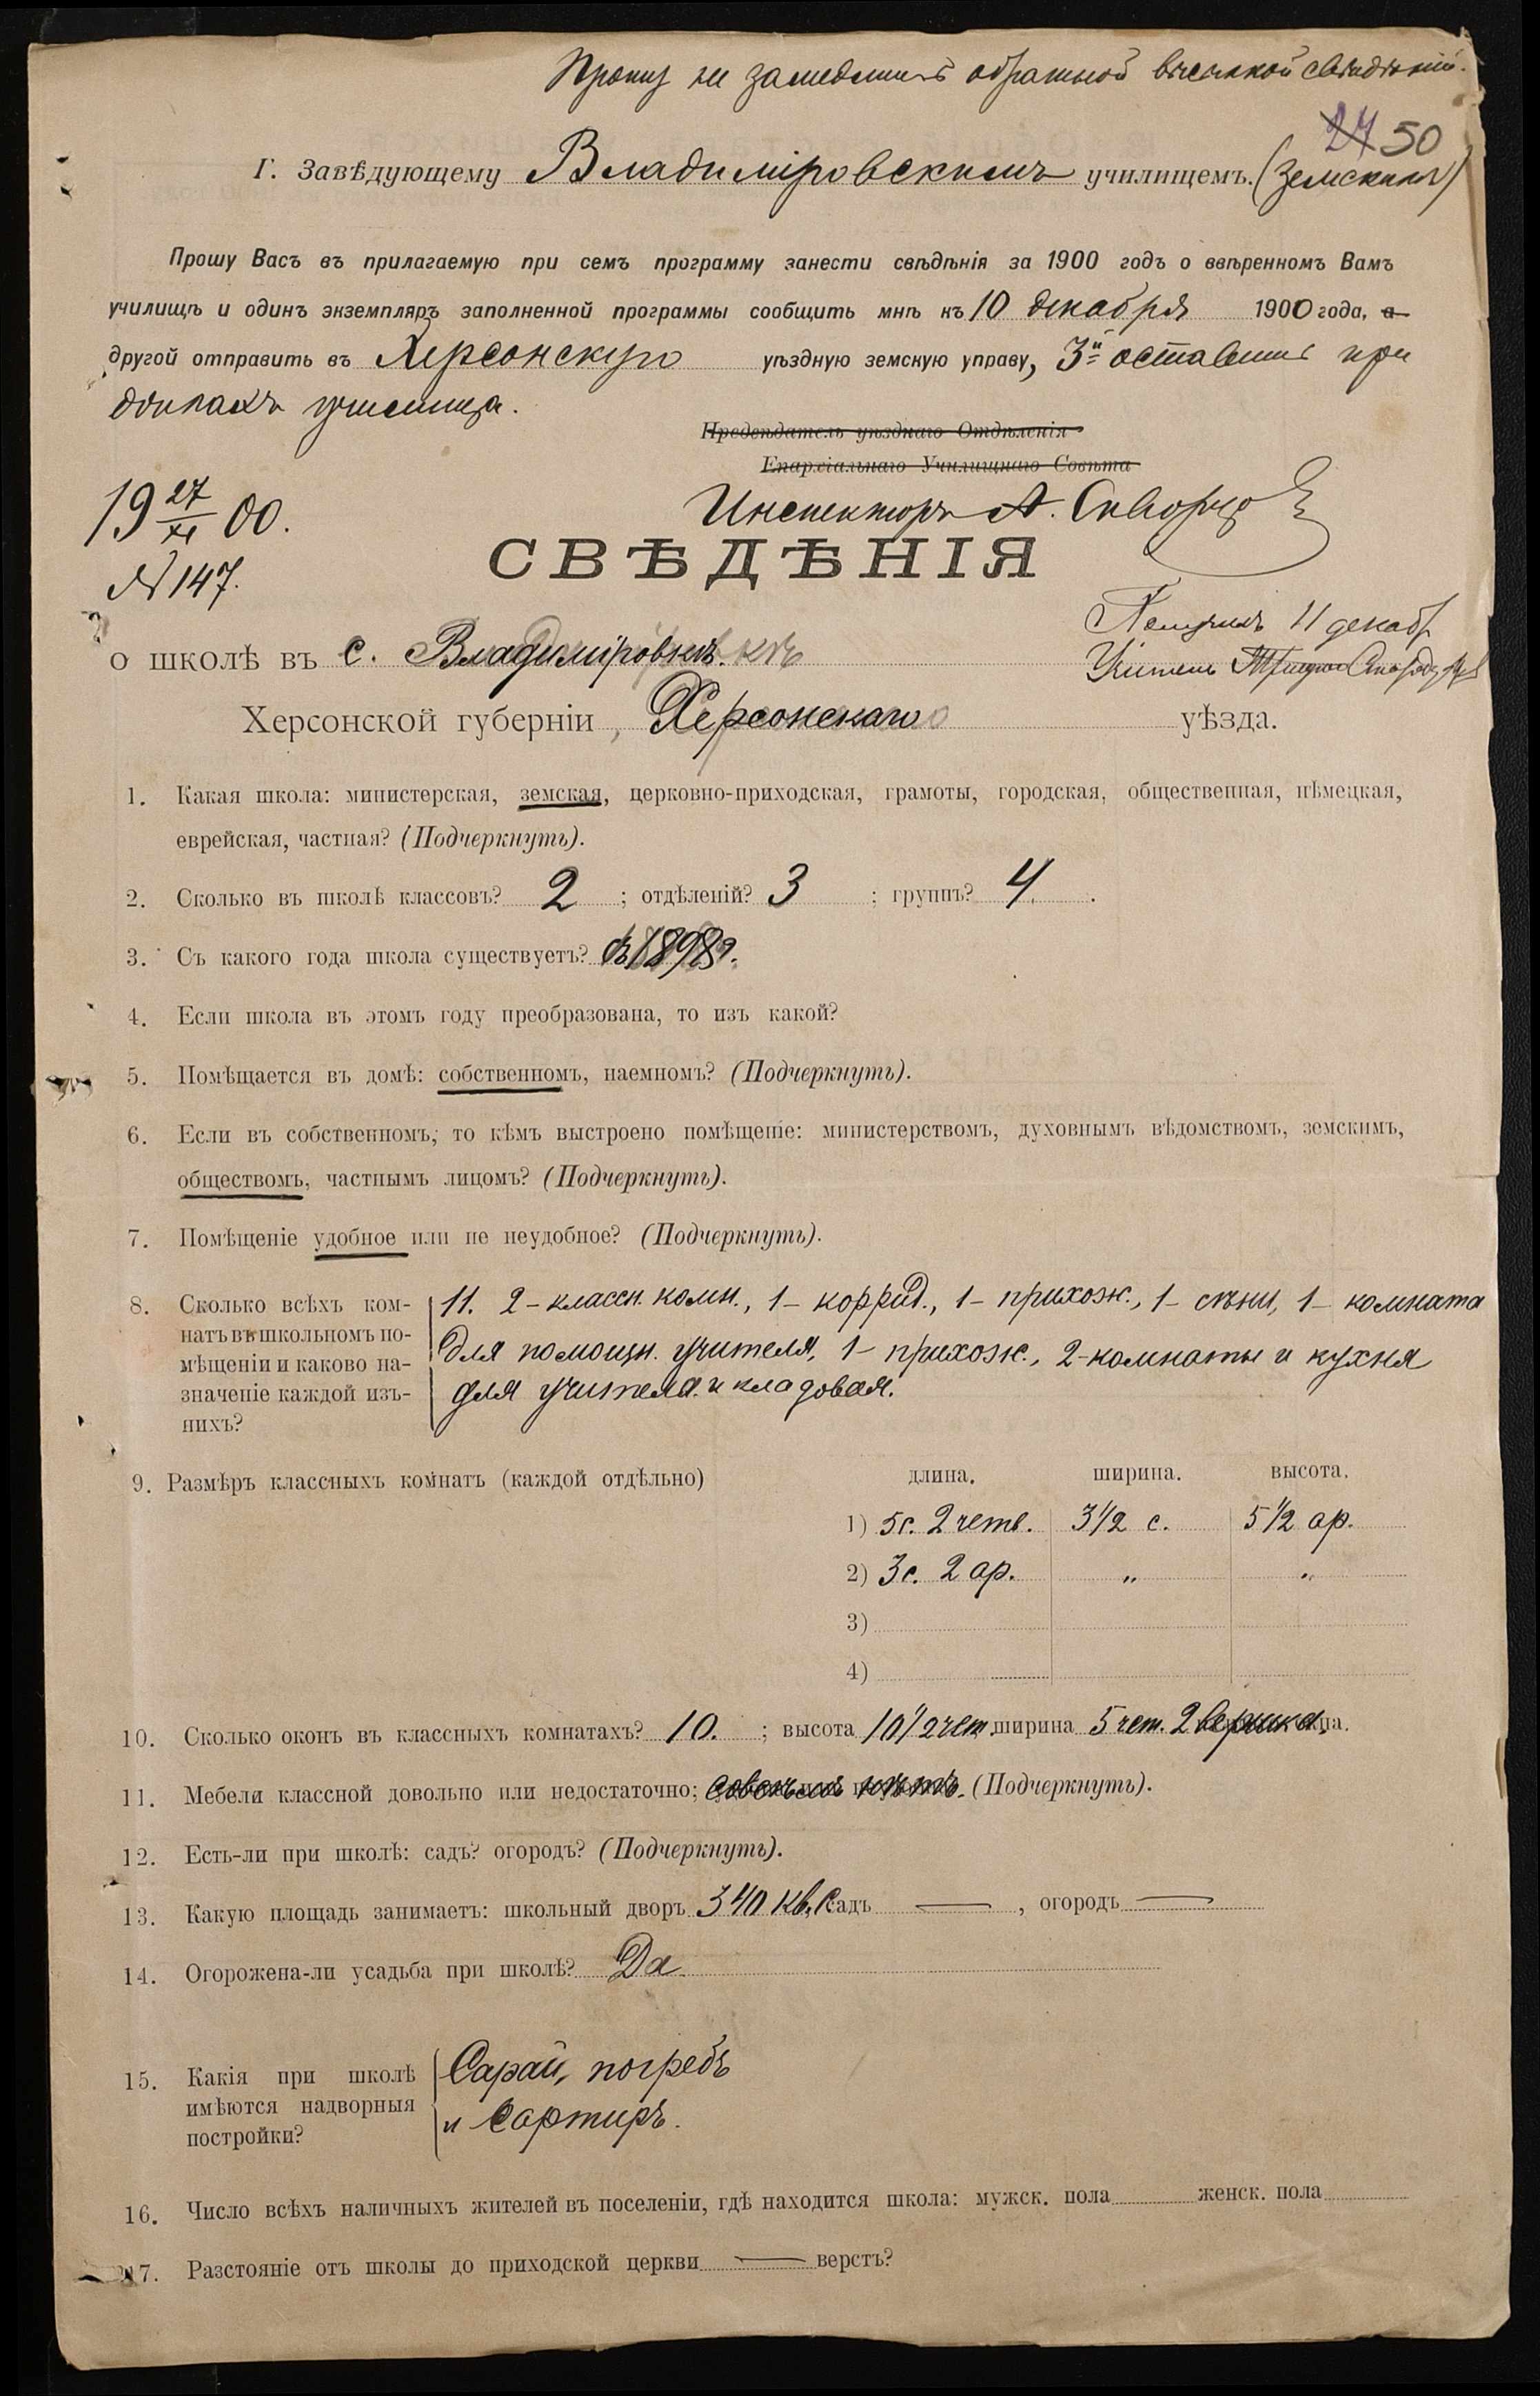 Прошу не замедлить обратной высылкой свѣдѣній.
27 50
Г. Завѣдующему Владиміровскимъ училищемъ. (Земскимъ)
Прошу Васъ въ прилагаемую при семъ программу занести свѣдѣнія за 1900 годъ о ввѣренномъ Вамъ
училищѣ и одинъ экземпляръ заполненной программы сообщить мнѣ къ 10 декабря 1900 года, а
другой отправить въ Херсонскую уѣздную земскую управу, 3й оставить при
дѣлахъ училища.
Предсѣдатель уѣзднаго Отдѣленія
Епархіальнаго Училищнаго Совѣта
19 27/XI 00.
Инспекторъ А. Скворцов
№ 147.
СВѢДѢНІЯ
Получилъ 11 декабр
о школѣ въ с. Владиміровкѣ.
Учитель
Херсонской губерніи, Херсонскаго уѣзда.
1. Какая школа: министерская, земская, церковно-приходская, грамоты, городская, общественная, нѣмецкая,
еврейская, частная? (Подчеркнуть).
2. Сколько въ школѣ классовъ? 2 ; отдѣленій? 3 ; группъ? 4.
3. Съ какого года школа существуетъ? съ 1898 г.
4. Если школа въ этомъ году преобразована, то изъ какой?
5. Помѣщается въ домѣ: собственномъ, наемномъ? (Подчеркнуть).
6. Если въ собственномъ, то кѣмъ выстроено помѣщеніе: министерствомъ, духовнымъ вѣдомствомъ, земскимъ,
обществомъ, частнымъ лицомъ? (Подчеркнуть).
7. Помѣщеніе удобное или не неудобное? (Подчеркнуть).
8. Сколько всѣхъ ком-
натъ въ школьномъ по-
мѣщеніи и каково на-
значеніе каждой изъ-
нихъ?
11. 2 – классн. комн., 1 – коррид., 1 – прихож., 1 – сѣни, 1 – комната
для помощн. учителя, 1 – прихож., 2 – комнаты и кухня
для учителя и кладовая.
9. Размѣръ классныхъ комнатъ (каждой отдѣльно) длина. ширина. высота.
1) 5 с. 2 четв. 3 1/2 с. 5 1/2 ар.
2) 3 с. 2 ар. „ „
3)
4)
10. Сколько оконъ въ классныхъ комнатахъ? 10. ; высота 10 1/2 чет. ширина 5 чет. 2 вершка.
11. Мебели классной довольно или недостаточно; совсѣмъ нѣтъ. (Подчеркнуть).
12. Есть-ли при школѣ: садъ? огородъ? (Подчеркнуть).
13. Какую площадь занимаетъ: школьный дворъ 340 кв. с. садъ — , огородъ —
14. Огорожена-ли усадьба при школѣ? Да
15. Какія при школѣ
имѣются надворныя
постройки?
Сарай, погребъ
и сортиръ.
16. Число всѣхъ наличныхъ жителей въ поселеніи, гдѣ находится школа: мужск. пола женск. пола
17. Разстояніе отъ школы до приходской церкви — верстъ?